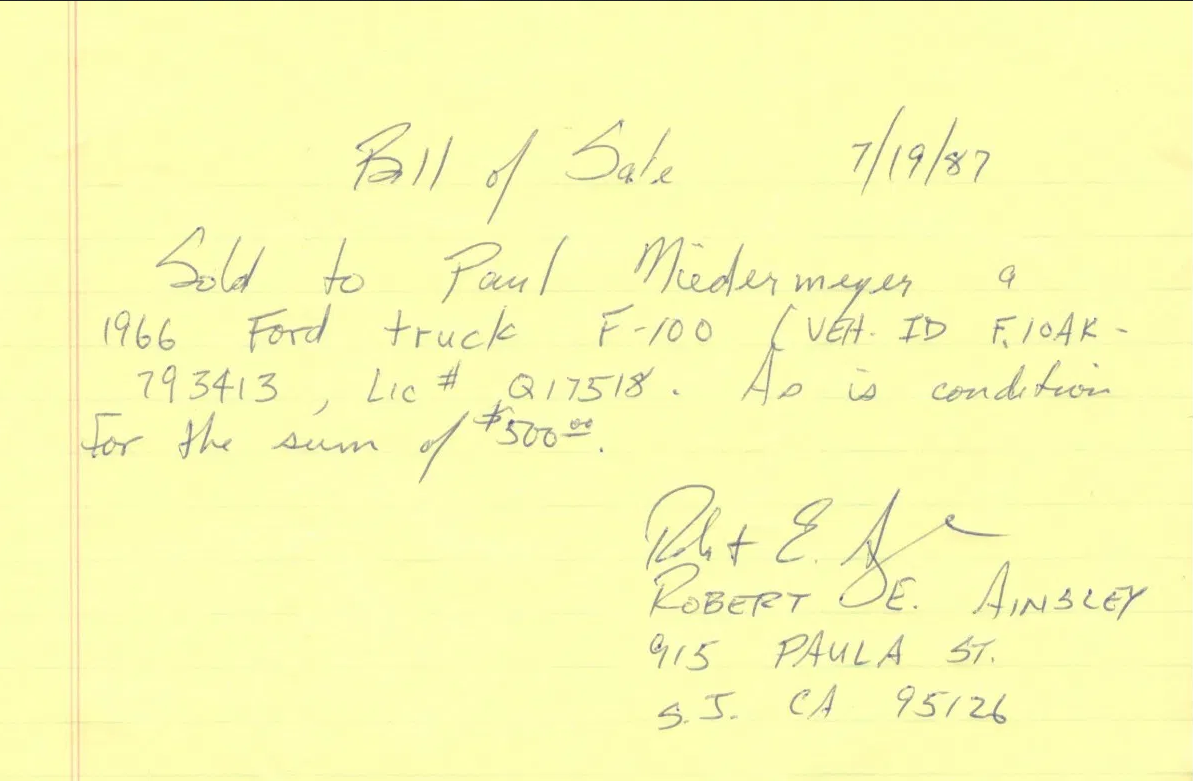 Bill of Sale 7/19/87
Sold to Paul Miedermeyer a
1966 Ford truck F-100 (VEH. ID F10AK-
793413, Lic # Q17518. As is condition
for the sum of $500.00.
Robert E. A
ROBERT E. AINSLEY
915 PAULA ST.
S.J. CA 95126